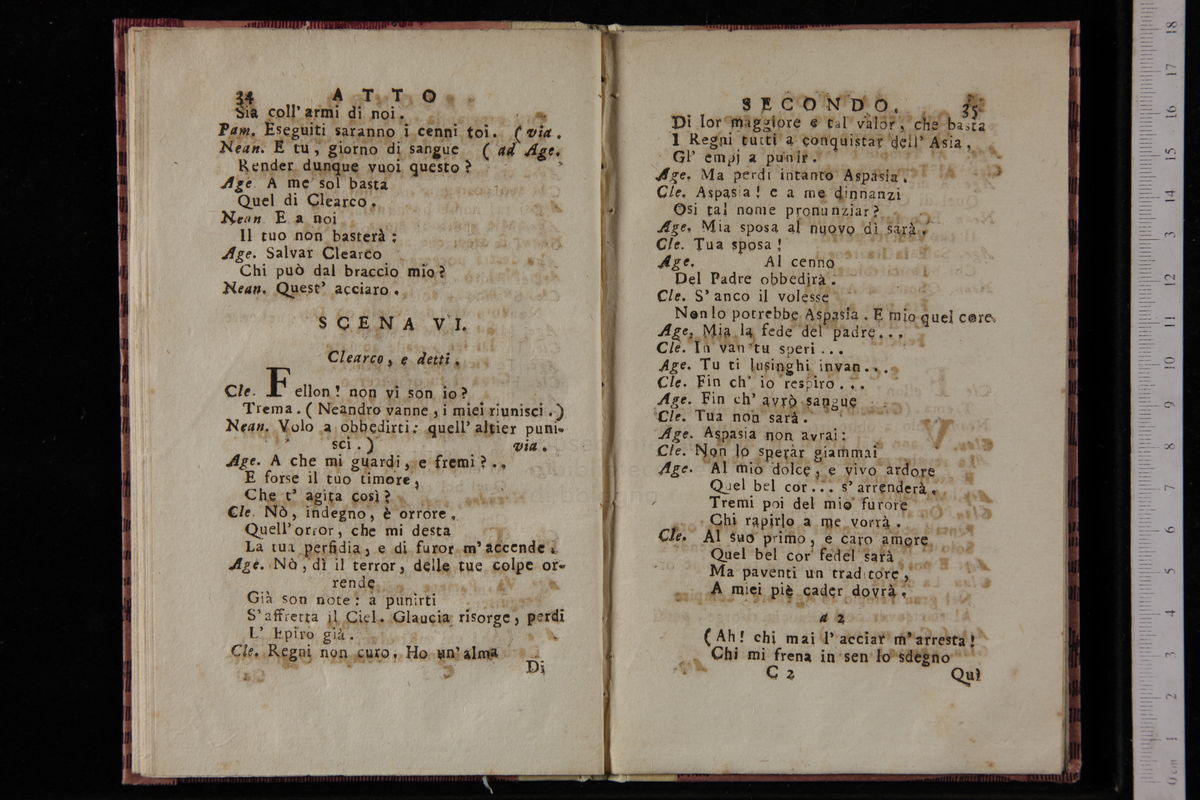 34 ATTO
Sia coll' armi di noi.
Pam. Eseguiti saranno i cenni toi. (via.
Nean. E tu, giorno di sangue (ad Age.
Render dunque vuoi questo?
Age A me sol basta
Quel di Clearco.
Nean E a noi
Il tuo non basterà;
Age. Salvar Clearco
Chi può dal braccio mio?
Nean. Quest' acciaro.
SCENA VI.
Clearco, e detti.
Cle. Fellon! non vi son io?
Trema. (Neandro vanne, i miei riunisci.)
Nean. Volo a obbedirti: quell' altier puni-
sci.) via.
Age. A che mi guardi, e fremi?..
E forse il tuo timore,
Che t' agita così?
Cle. Nò, indegno, è orrore,
Quell' orror, che mi desta
La tua perfidia, e di furor m' accende.
Age. Nò, dì il terror, delle tue colpe or-
rende
Già son note: a punirti
S' affretta il Ciel. Glaucia risorge, perdi
L' Epiro già.
Cle. Regni non curo. Ho un' alma
Di
SECONDO. 35
Di lor maggiore e tal valor, che basta
I Regni tutti a conquistar dell' Asia,
Gl' empj a punir.
Age. Ma perdi intanto Aspasia.
Cle. Aspasia! e a me dinnanzi
Osi tal nome pronunziar?
Age. Mia sposa al nuovo dì sarà.
Cle. Tua sposa!
Age. Al cenno
Del Padre obbedirà.
Cle. S' anco il volesse
Non lo potrebbe Aspasia. E mio quel core.
Age. Mia la fede del padre...
Cle. In van tu speri...
Age. Tu ti lusinghi invan...
Cle. Fin ch' io respiro...
Age. Fin ch' avrò sangue
Cle. Tua non sarà.
Age. Aspasia non avrai:
Cle. Non lo sperar giammai
Age. Al mio dolce, e vivo ardore
Quel bel cor... s' arrenderà.
Tremi poi del mio furore
Chi rapirlo a me vorrà.
Cle. Al suo primo, e caro amore
Quel bel cor fedel sarà
Ma paventi un traditore,
A miei piè cader dovrà.
a 2
(Ah! chi mai l' acciar m' arresta!
Chi mi frena in sen lo sdegno
C 2 Quì